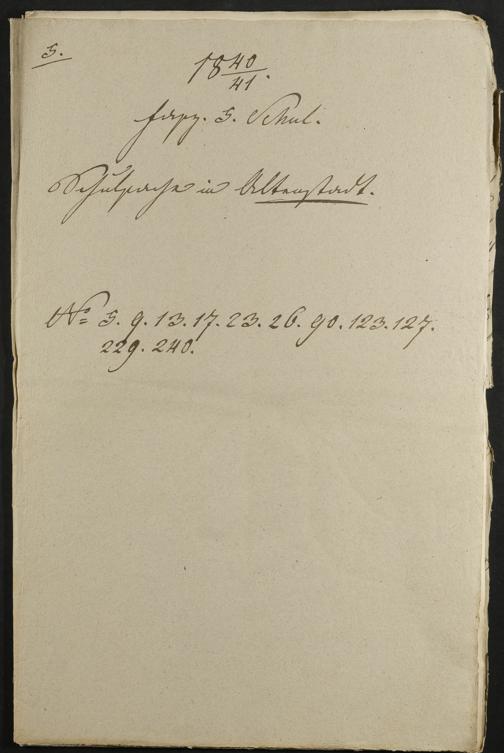 5.
18 40/41.
Fasz. 5. Schul.
Schulsache in Altenstadt.
No 5. 9. 13. 17. 23. 26. 90. 123. 127.
229. 240.